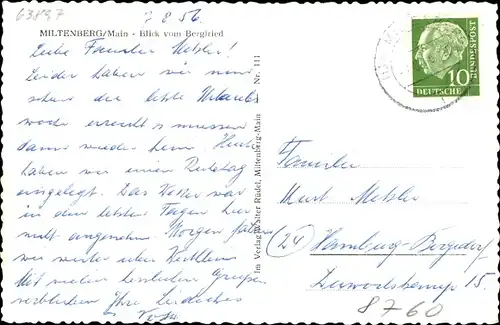 63897
7.8.56.
MILTENBERG/Main - Blick vom Bergfried
Liebe Familie Metzler!
Leider haben wir nun
schon die letzte Urlaubs
woche erreicht u müssen
dann wieder heim. Heute
haben wir einen Ruhetag
eingelegt. Das Wetter war
in den letzten Tagen hier
nicht angenehm. Morgen fahren
wir weiter über
Mit vielen herzlichen Grüssen
verbleiben Ihre
Nr. 111
Im Verlag Walter Rüdel, Miltenberg-Main
10
DEUTSCHE
BUNDESPOST
Familie
Kurt Metzler
(24) Hamburg-Bergedorf
15.
8760